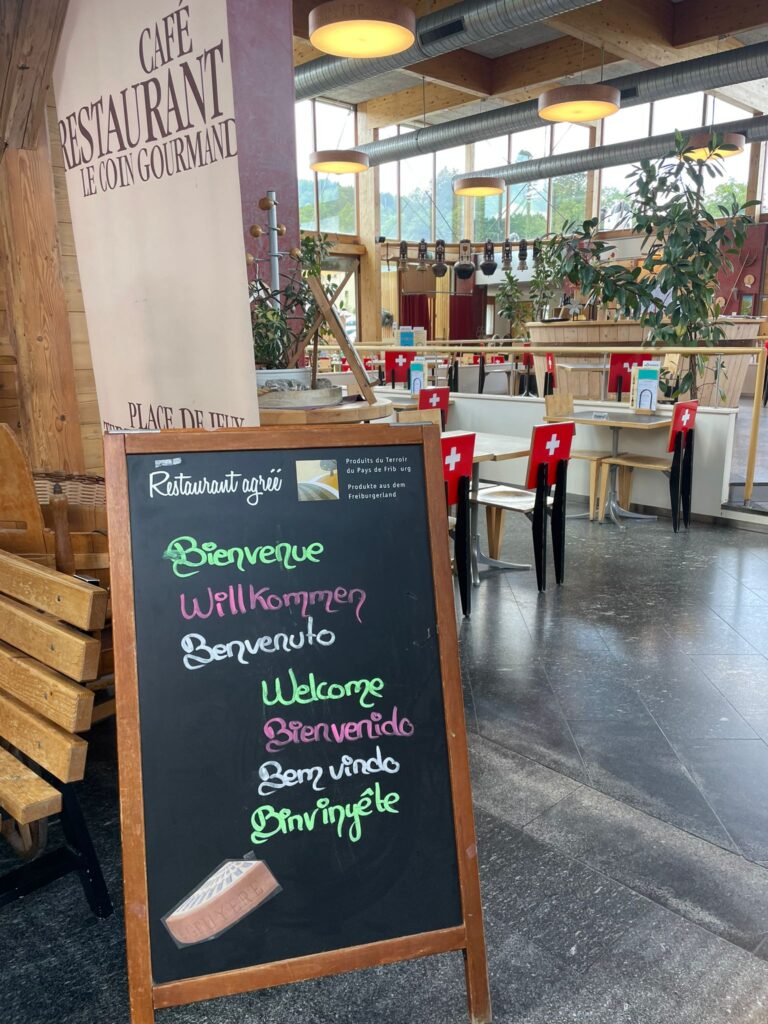 CAFÉ
RESTAURANT
LE COIN GOURMAND
PLACE DE JEUX
Restaurant agréé
Produits du Terroir
du Pays de Frib urg
Produkte aus dem
Freiburgerland
Bienvenue
Willkommen
Benvenuto
Welcome
Bienvenido
Bem vindo
Binvinyête
GRUYÈRE